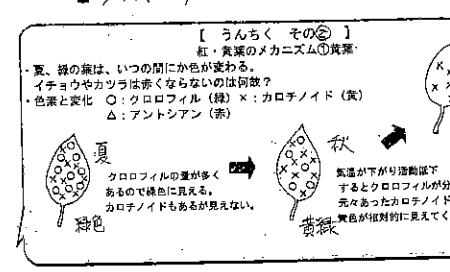 【 うんちく その② 】
紅・黄葉のメカニズム①黄葉
・夏、緑の葉は、いつの間にか色が変わる。
イチョウやカツラは赤くならないのは何故？
・色素と変化 ○：クロロフィル（緑）×：カロチノイド（黄）
△：アントシアン（赤）
夏
クロロフィルの量が多く
あるので緑色に見える。
カロチノイドもあるが見えない。
緑色
秋
気温が下がり活動低下
するとクロロフィルが分
元々あったカロチノイド
黄色が相対的に見えてく
黄緑